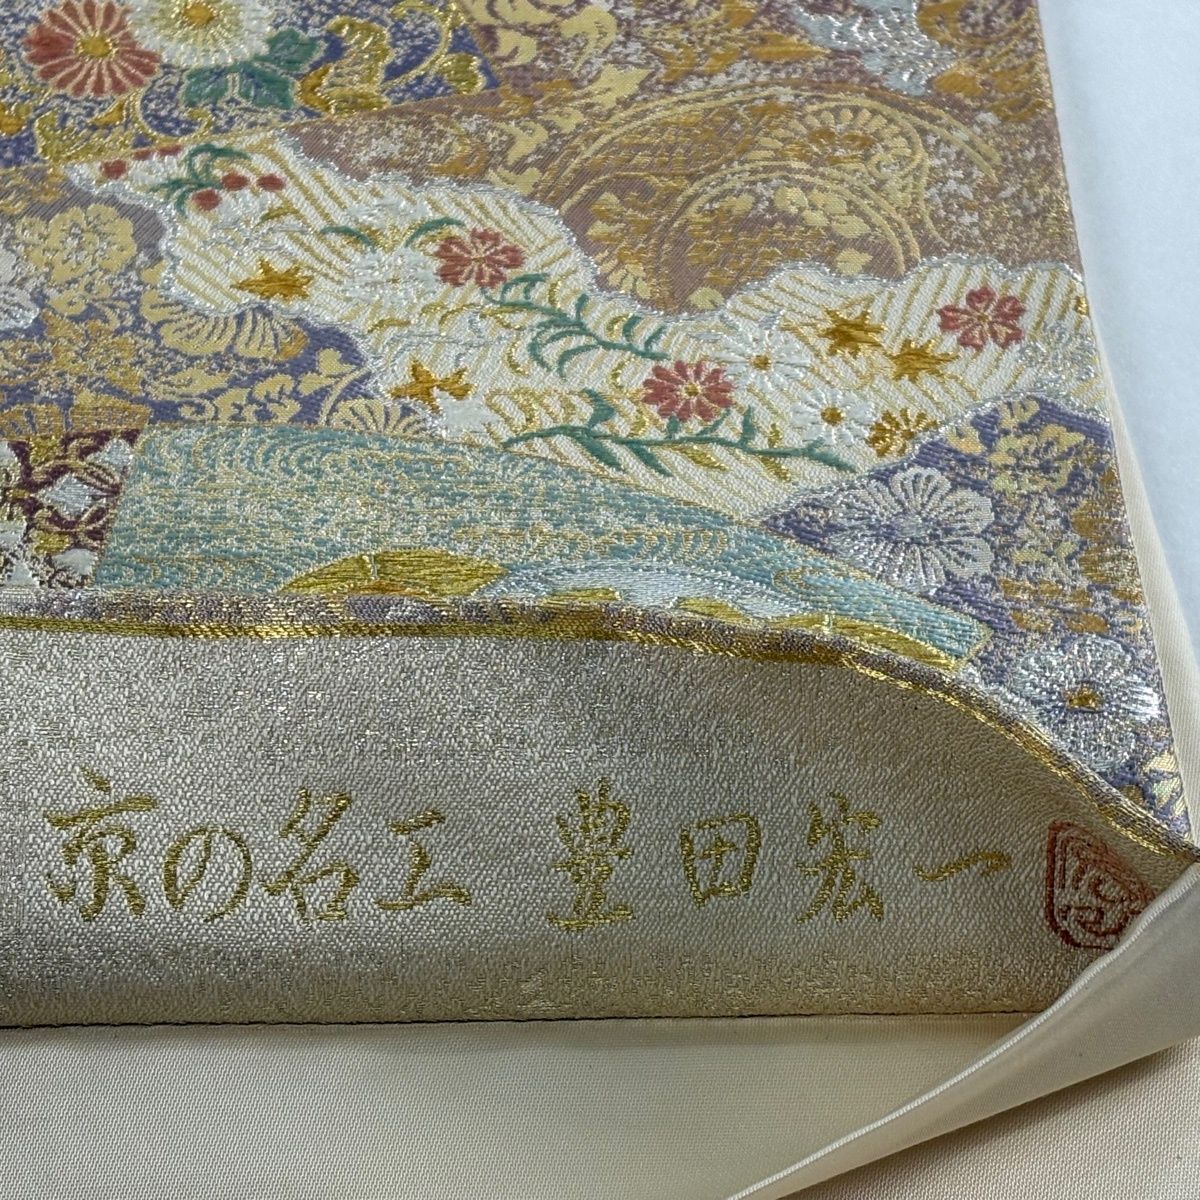 京の名工 豊田宏一